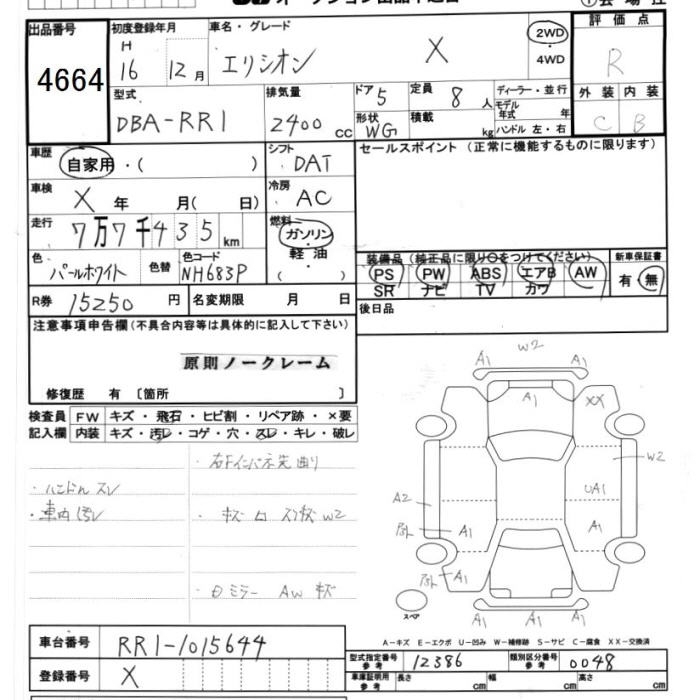 出品番号
4664
初度登録年月
H
16 12月
車名・グレード
エリシオン X
2WD
・
4WD
評価点
R
型式
DBA-RR1
排気量
2400 cc
ドア 5
定員 8人
形状 WG
積載 kg
ディーラー・並行
モデル年式 年
ハンドル 左・右
外装 内装
C B
車歴
自家用・( )
シフト
DAT
セールスポイント (正常に機能するものに限ります)
車検
X 年 月( 日)
冷房
AC
走行
7万7千435km
燃料
ガソリン
・
軽油
・
( )
色
パールホワイト
色替
色コード
NH683P
装備品 (純正品に限り○をつけてください)
PS PW ABS エアB AW
SR ナビ TV カワ
新車保証書
有・無
R券 15250円
名変期限 月 日
後日品
注意事項申告欄(不具合内容等は具体的に記入して下さい)
原則ノークレーム
修復歴 有 〔箇所 〕
検査員
記入欄
FW キズ・飛石・ヒビ割・リペア跡・×要
内装 キズ・汚レ・コゲ・穴・スレ・キレ・破レ
・ハンドル スレ
・車内 汚レ
W2
A1 A1
A1
XX
W2
A2
UA1
A1
A1
A1
A1 A1
A1
スペア
A-キズ E-エクボ U-凹み W-補修跡 S-サビ C-腐食 XX-交換済
車台番号 RR1-1015644
登録番号 X
型式指定番号 参考 12386
類別区分番号 参考 0048
車庫証明用 参考 長さ cm 幅 cm 高さ cm